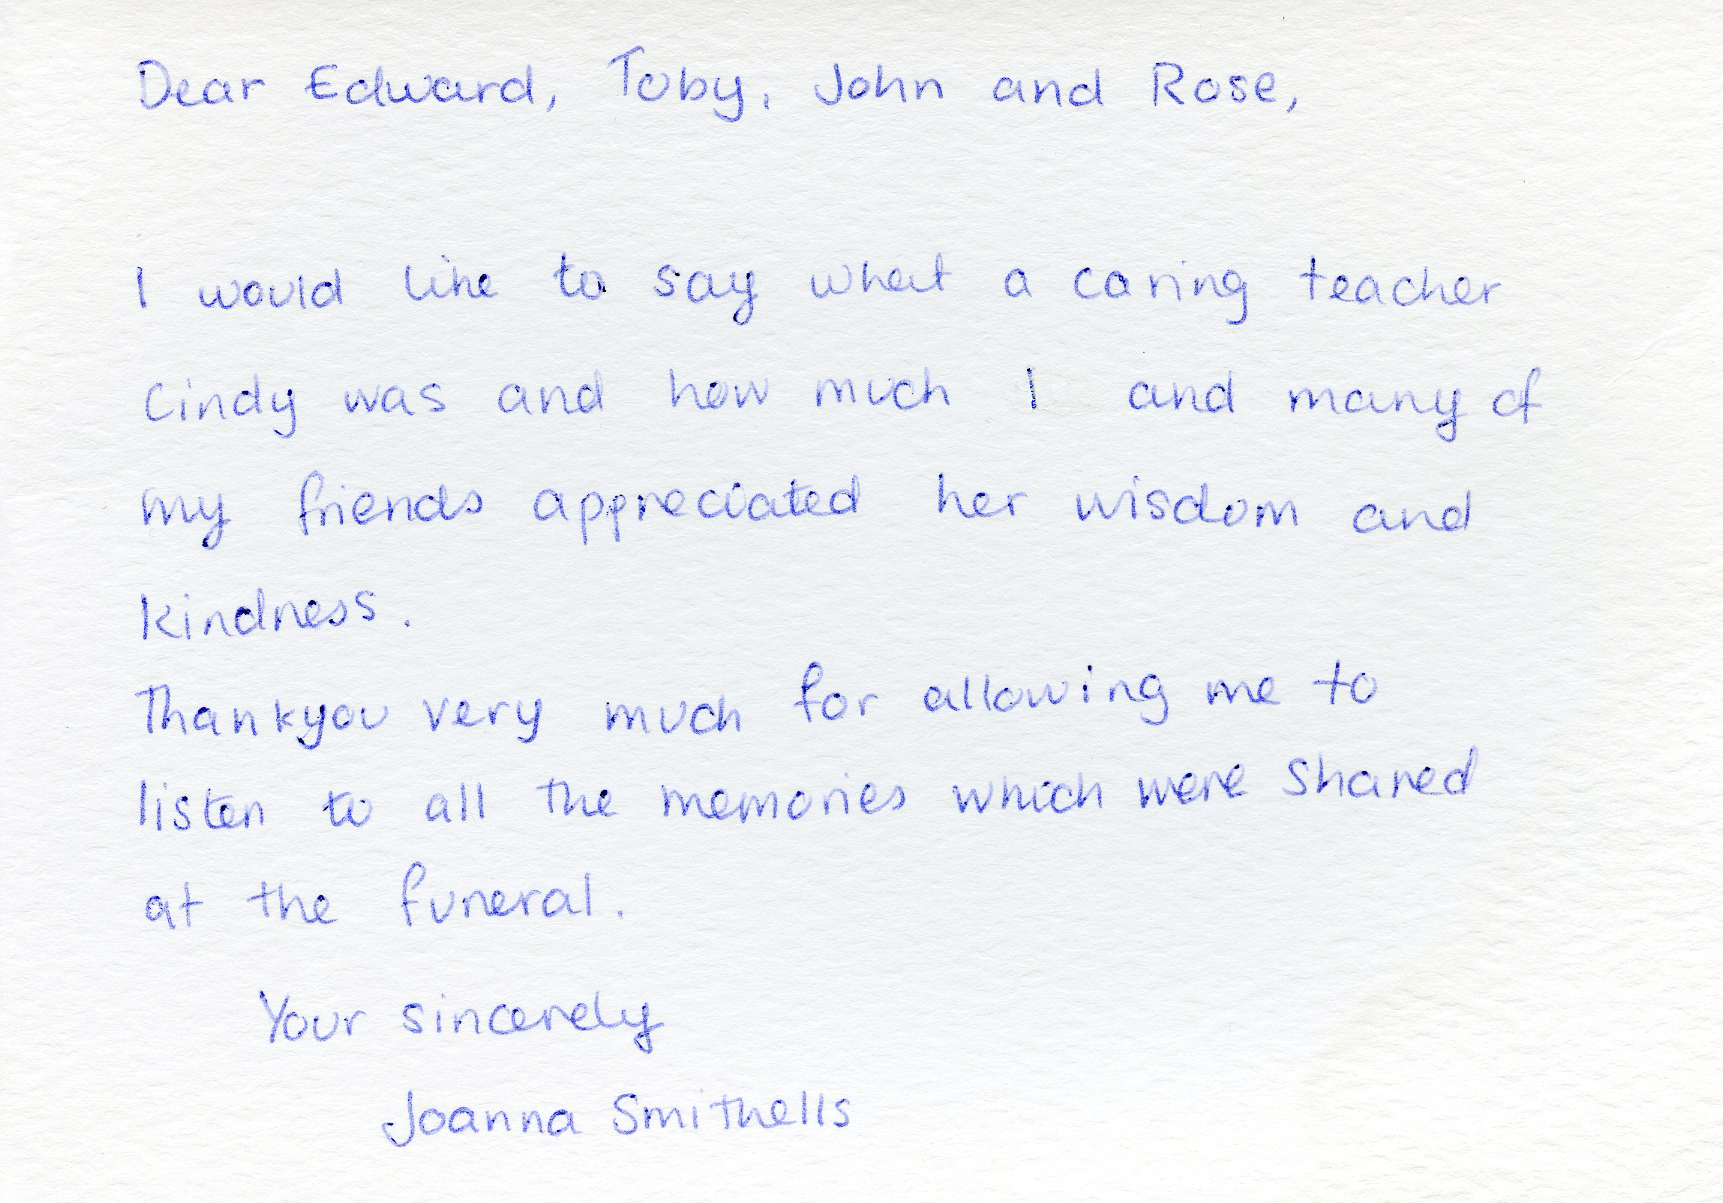 Dear Edward, Toby, John and Rose,
I would like to say what a caring teacher
Cindy was and how much I and many of
my friends appreciated her wisdom and
kindness.
Thankyou very much for allowing me to
listen to all the memories which were shared
at the funeral.
Your sincerely
Joanna Smithells